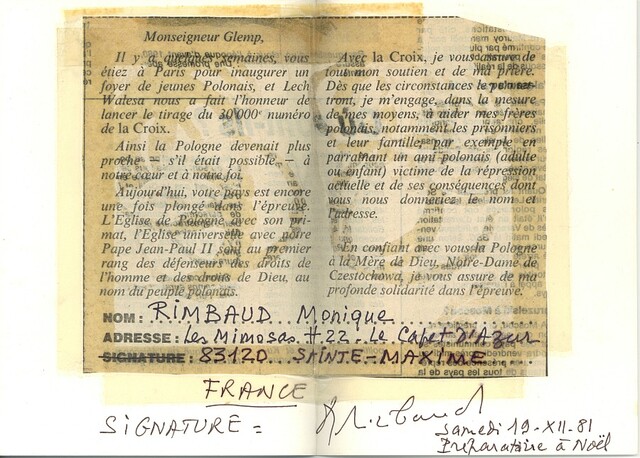 Monseigneur Glemp,
Il y a quelques semaines, vous
étiez à Paris pour inaugurer un
foyer de jeunes Polonais, et Lech
Walesa nous a fait l'honneur de
lancer le tirage du 30 000e numéro
de la Croix.
Ainsi la Pologne devenait plus
proche – s'il était possible – à
notre cœur et à notre foi.
Aujourd'hui, votre pays est encore
une fois plongé dans l'épreuve.
L'Eglise de Pologne avec son pri-
mat, l'Eglise universelle avec notre
Pape Jean-Paul II sont au premier
rang des défenseurs des droits de
l'homme et des droits de Dieu, au
nom du peuple polonais.
Avec la Croix, je vous assure de
tout mon soutien et de ma prière.
Dès que les circonstances le permet-
tront, je m'engage, dans la mesure
de mes moyens, à aider mes frères
polonais, notamment les prisonniers
et leur famille, par exemple en
parrainant un ami polonais (adulte
ou enfant) victime de la répression
actuelle et de ses conséquences dont
vous nous donneriez le nom et
l'adresse.
En confiant avec vous la Pologne
à la Mère de Dieu, Notre-Dame de
Czestochowa, je vous assure de ma
profonde solidarité dans l'épreuve.
NOM : RIMBAUD Monique
ADRESSE : Les Mimosas H.22 - Le Capet D'Azur
SIGNATURE : 83120 SAINTE-MAXIME
FRANCE
SIGNATURE =
Samedi 19-XII-81
Préparatoire à Noël